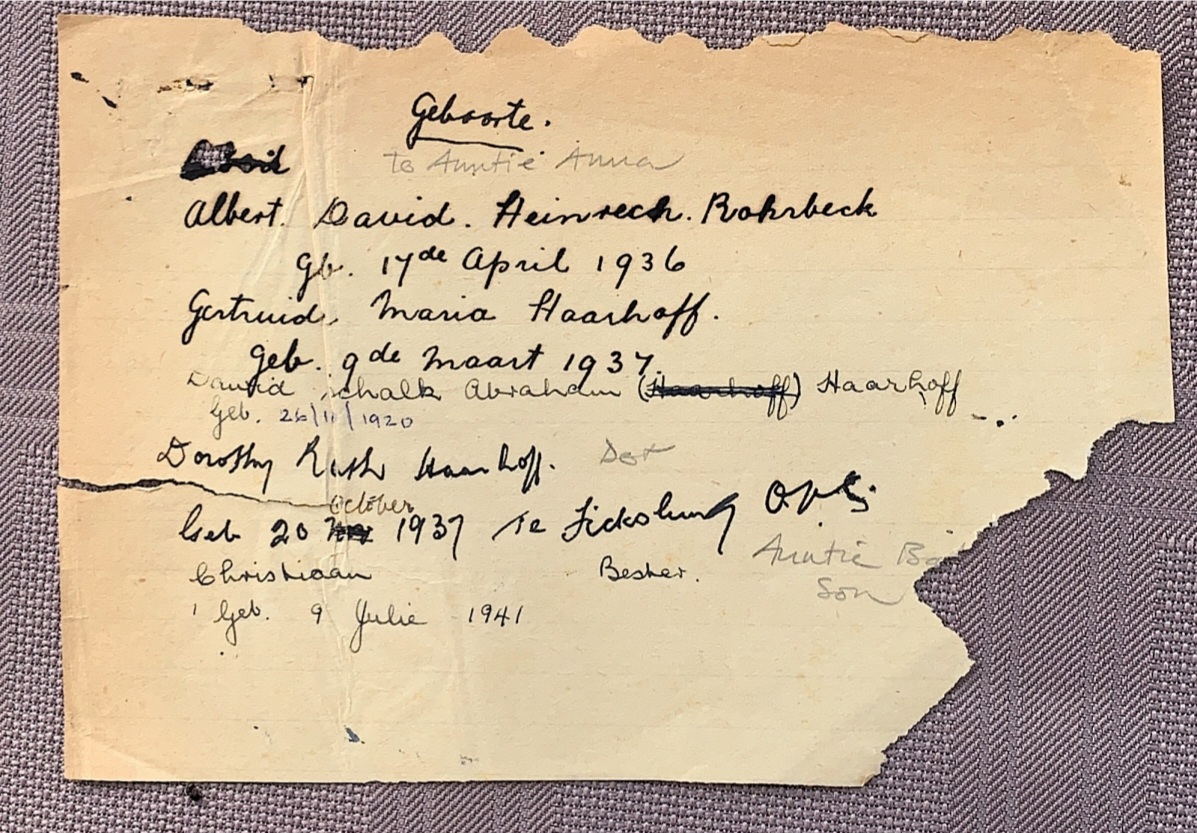 Geboorte.
to Auntie Anna
Albert. David. Heinrech. Rohrbeck
gb. 17de April 1936
Gertruid, Maria Haarhoff.
geb. 9de Maart 1937.
David Schalk Abraham (Haarhoff) Haarhoff
Geb. 26/11/1920
Dorothy Ruth Haarhoff. Dot
October
Geb 20 1937 Te Ficksburg O.V.S.
Auntie
Christiaan Bester.
Son
Geb. 9 Julie 1941